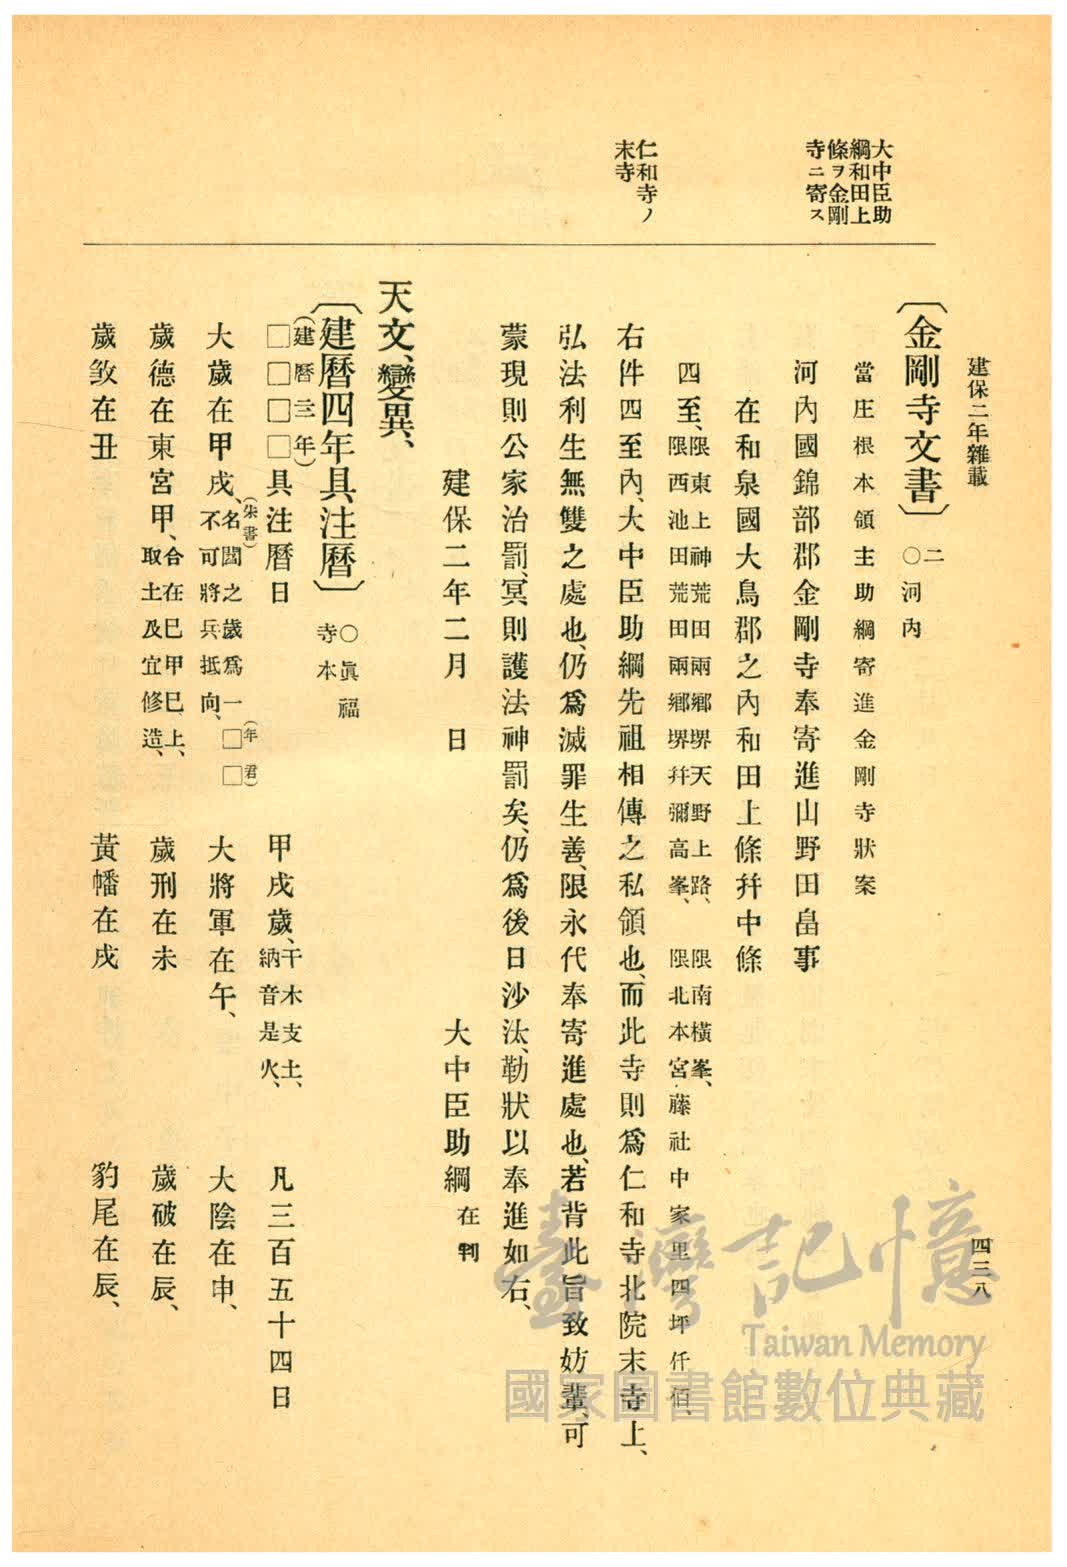 建保二年雜載
四三八
大中臣助
綱和田上
條ヲ金剛
寺ニ寄ス
仁和寺ノ
末寺
〔金剛寺文書〕 二 〇河內
當庄根本領主助綱寄進金剛寺狀案
河內國錦部郡金剛寺奉寄進山野田畠事
在和泉國大鳥郡之內和田上條幷中條
四至、限東上神荒田兩鄉堺天野上路、 限南橫峯、
限西池田荒田兩鄉堺幷彌高峯、 限北本宮藤社中家里四坪仟佰、
右件四至內、大中臣助綱先祖相傳之私領也、而此寺則爲仁和寺北院末寺上、
弘法利生無雙之處也、仍爲滅罪生善、限永代奉寄進處也、若背此旨致妨輩、可
蒙現則公家治罰、冥則護法神罰矣、仍爲後日沙汰、勒狀以奉進如右、
建保二年二月 日
大中臣助綱 在判
天文、變異、
〔建曆四年具注曆〕 〇眞福
寺本
(建曆三年)
□□□□具注曆日 甲戌歲、干木支土、
納音是火、 凡三百五十四日
(朱書)
大歲在甲戌、名閹之歲爲一□□(年君)
不可將兵抵向、 大將軍在午、 大陰在申、
歲德在東宮甲、合在巳甲巳上、
取土及宜修造、 歲刑在未 歲破在辰、
歲煞在丑 黃幡在戌 豹尾在辰、
臺灣記憶
Taiwan Memory
國家圖書館數位典藏